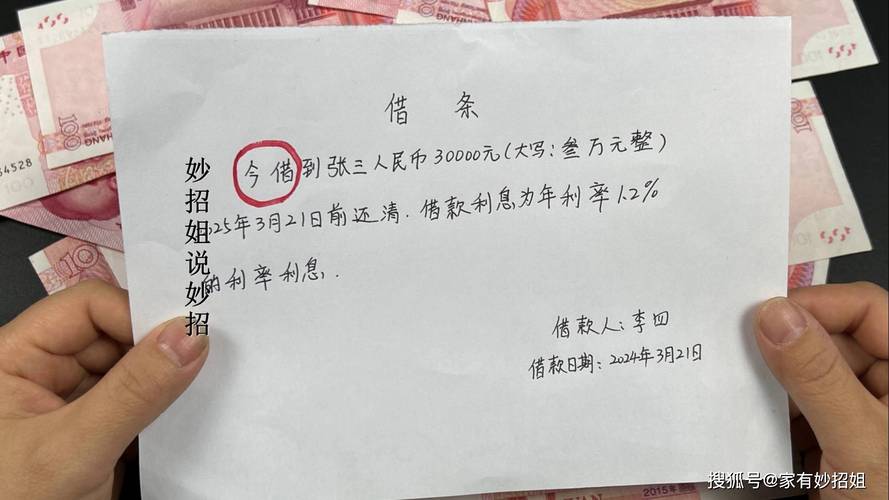 借 条
今借到张三人民币30000元(大写:叁万元整)
025年3月21日前还清.借款利息为年利率1.2%
的利率利息.
借款人:李四
借款日期:2024年3月21日
妙招姐说妙招
搜狐号@家有妙招姐
100
64528
100
100
100
2015年